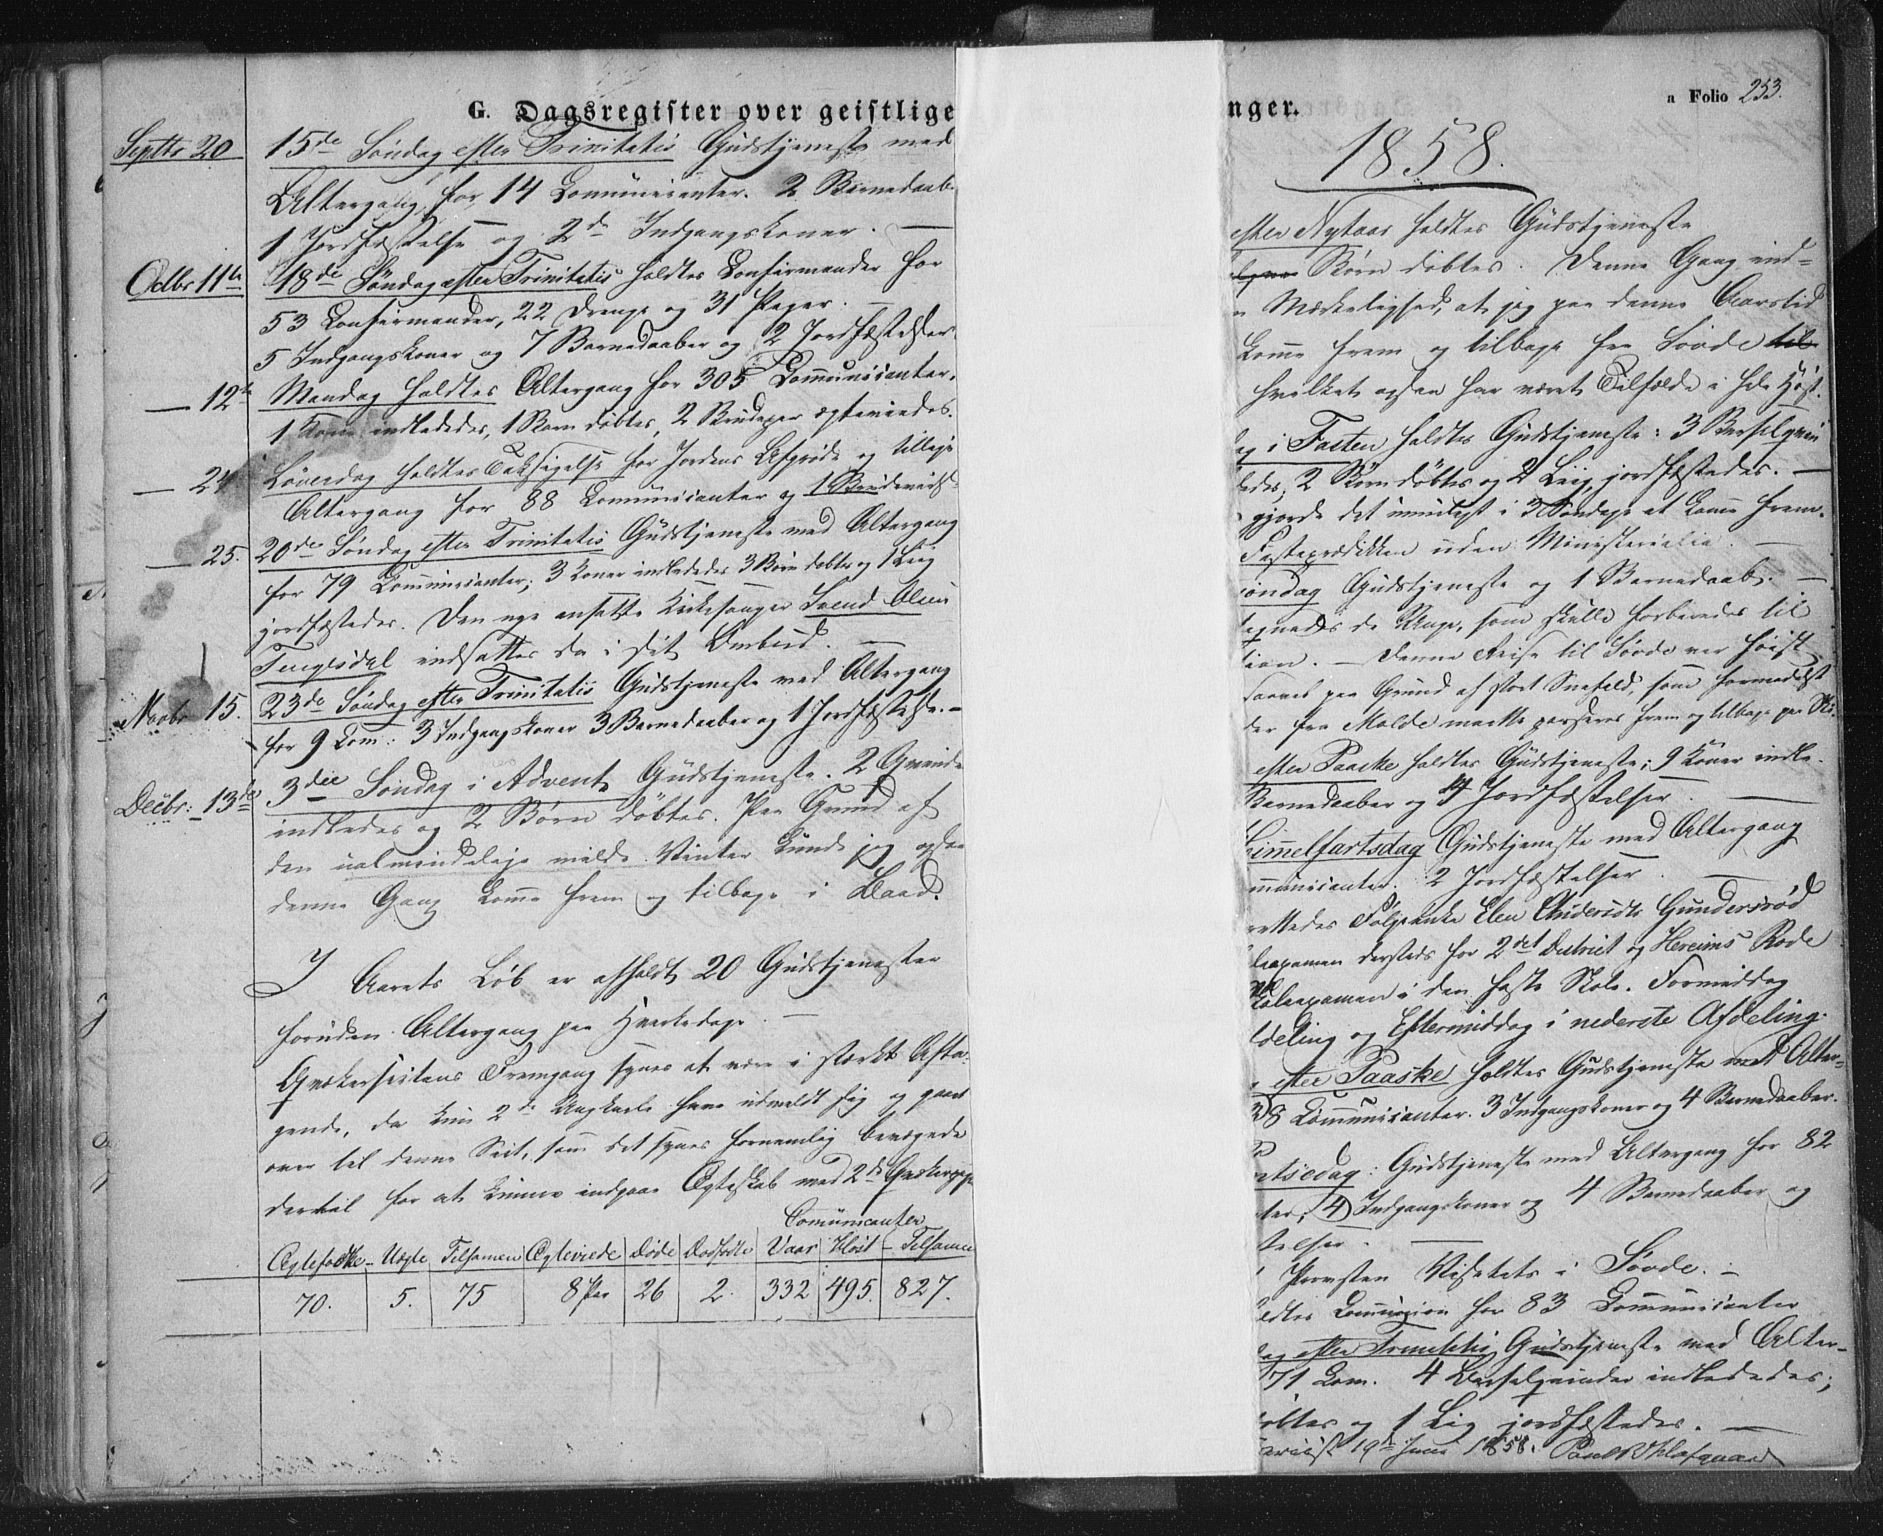 G. Dagsregister over geistlige
Septbr 20 15de Søndag efter Trinitatis Gudstjeneste med
Altergang for 14 Communicanter. 2 Barnedaab
1 Jordfæstelse og 2de Indgangskoner. —
Octbr 11te 18de Søndag efter Trinitatis holdtes Confirmander for
53 Confirmander, 22 Drenge og 31 Piger. —
5 Indgangskoner og 7 Barnedaaber og 2 Jordfæstelser
— 12te Mandag holdtes Altergang for 305 Communicanter,
1 Kone indlededes, 1 Barn døbtes, 2 Brudepar ægteviedes.
— 24 Løverdag holdtes Taksigelse for Jordens Afgrøde og tillige
Altergang for 88 Communicanter og 1 Brudevielse
— 25. 20de Søndag efter Trinitatis Gudstjeneste med Altergang
for 79 Communicanter; 3 Koner indlededes 3 Børn døbtes og 1 Liig
jordfæstedes. Den nye ansatte Kirkesanger Svend Olsen
Tengesdal indsattes da i sit Ombud. —
Novbr 15. 23de Søndag efter Trinitatis Gudstjeneste med Altergang
for 9 Com: 3 Indgangskoner 3 Barnedaaber og 1 Jordfæstelse. —
Decbr: 13de 3die Søndag i Advent Gudstjeneste. 2 Qvinde
indledes og 2 Børn døbtes. Paa Grund af
den ualmindelige milde Vinter kunde jeg ogsaa
denne Gang komme frem og tilbage i Baad.
I Aarets Løb er afholdt 20 Gudstjenester
foruden Altergang paa Hverkedage. —
Qvækersectens Fremgang synes at være i stærkt Afta-
gende, da kun 2de Ungkarle have udmeldt sig og gaaet
over til denne Sect, som det synes fornemlig bevægede
dertil for at kunne indgaae Ægteskab med 2de Qvækerpige
Comunicanter
Ægtefødte — Uægte Tilsamen Ægteviede Døde Dødfødte Vaar Høst — Tilsamen
70. 5. 75 8 Par 26 2. 332 495. 827.
nger.
a Folio 253.
1858.
efter Nytaar holdtes Gudstjeneste
Børn døbtes. Denne Gang ind-
Mærkelighed, at jeg paa denne Aarstid
komme frem og tilbage fra Sovde
hvilket ogsaa har været Tilfælde i hele Høst.
i Fasten holdtes Gudstjeneste: 3 Barselqvin
ledes; 2 Børn døbtes og 2 Liig jordfæstedes. —
gjorde det umuligt i 3 Søndage at komme frem.
Fasteprædikken uden Ministerialia. —
søndag Gudstjeneste og 1 Barnedaab. —
tegnedes de Unge, som skulle forberedes til
tion. — Denne Reise til Sovde var høist
paa Grund af stort Snefald, som formedelst
der fra Molde maatte passeres frem og tilbage paa Ski.
efter Paaske holdtes Gudstjeneste; 9 Koner indle.
Barnedaaber og 4 Jordfæstelser. —
Himmelfartsdag Gudstjeneste med Altergang
municanter. 2 Jordfæstelser. —
Elen Gundersrød
examen dersteds for 2det District og Hereims Rode
Skoleexamen i den faste Skole. Formiddag
deling og Eftermiddag i nederste Afdeling.
efter Paaske holdtes Gudstjeneste med Alter-
38 Communicanter. 3 Indgangskoner og 4 Barnedaaber.
tsedag: Gudstjeneste med Altergang for 82
ter; 4 Indgangskoner og 4 Barnedaaber og
telser. —
Provsten Visitats i Sovde. —
ldtes Communion for 83 Communicanter
ag efter Trinitatis Gudstjeneste med Alter-
71 Com. 4 Barselqvinder indlededes;
øbtes og 1 Lig jordfæstedes. —
19de Juni 1858.